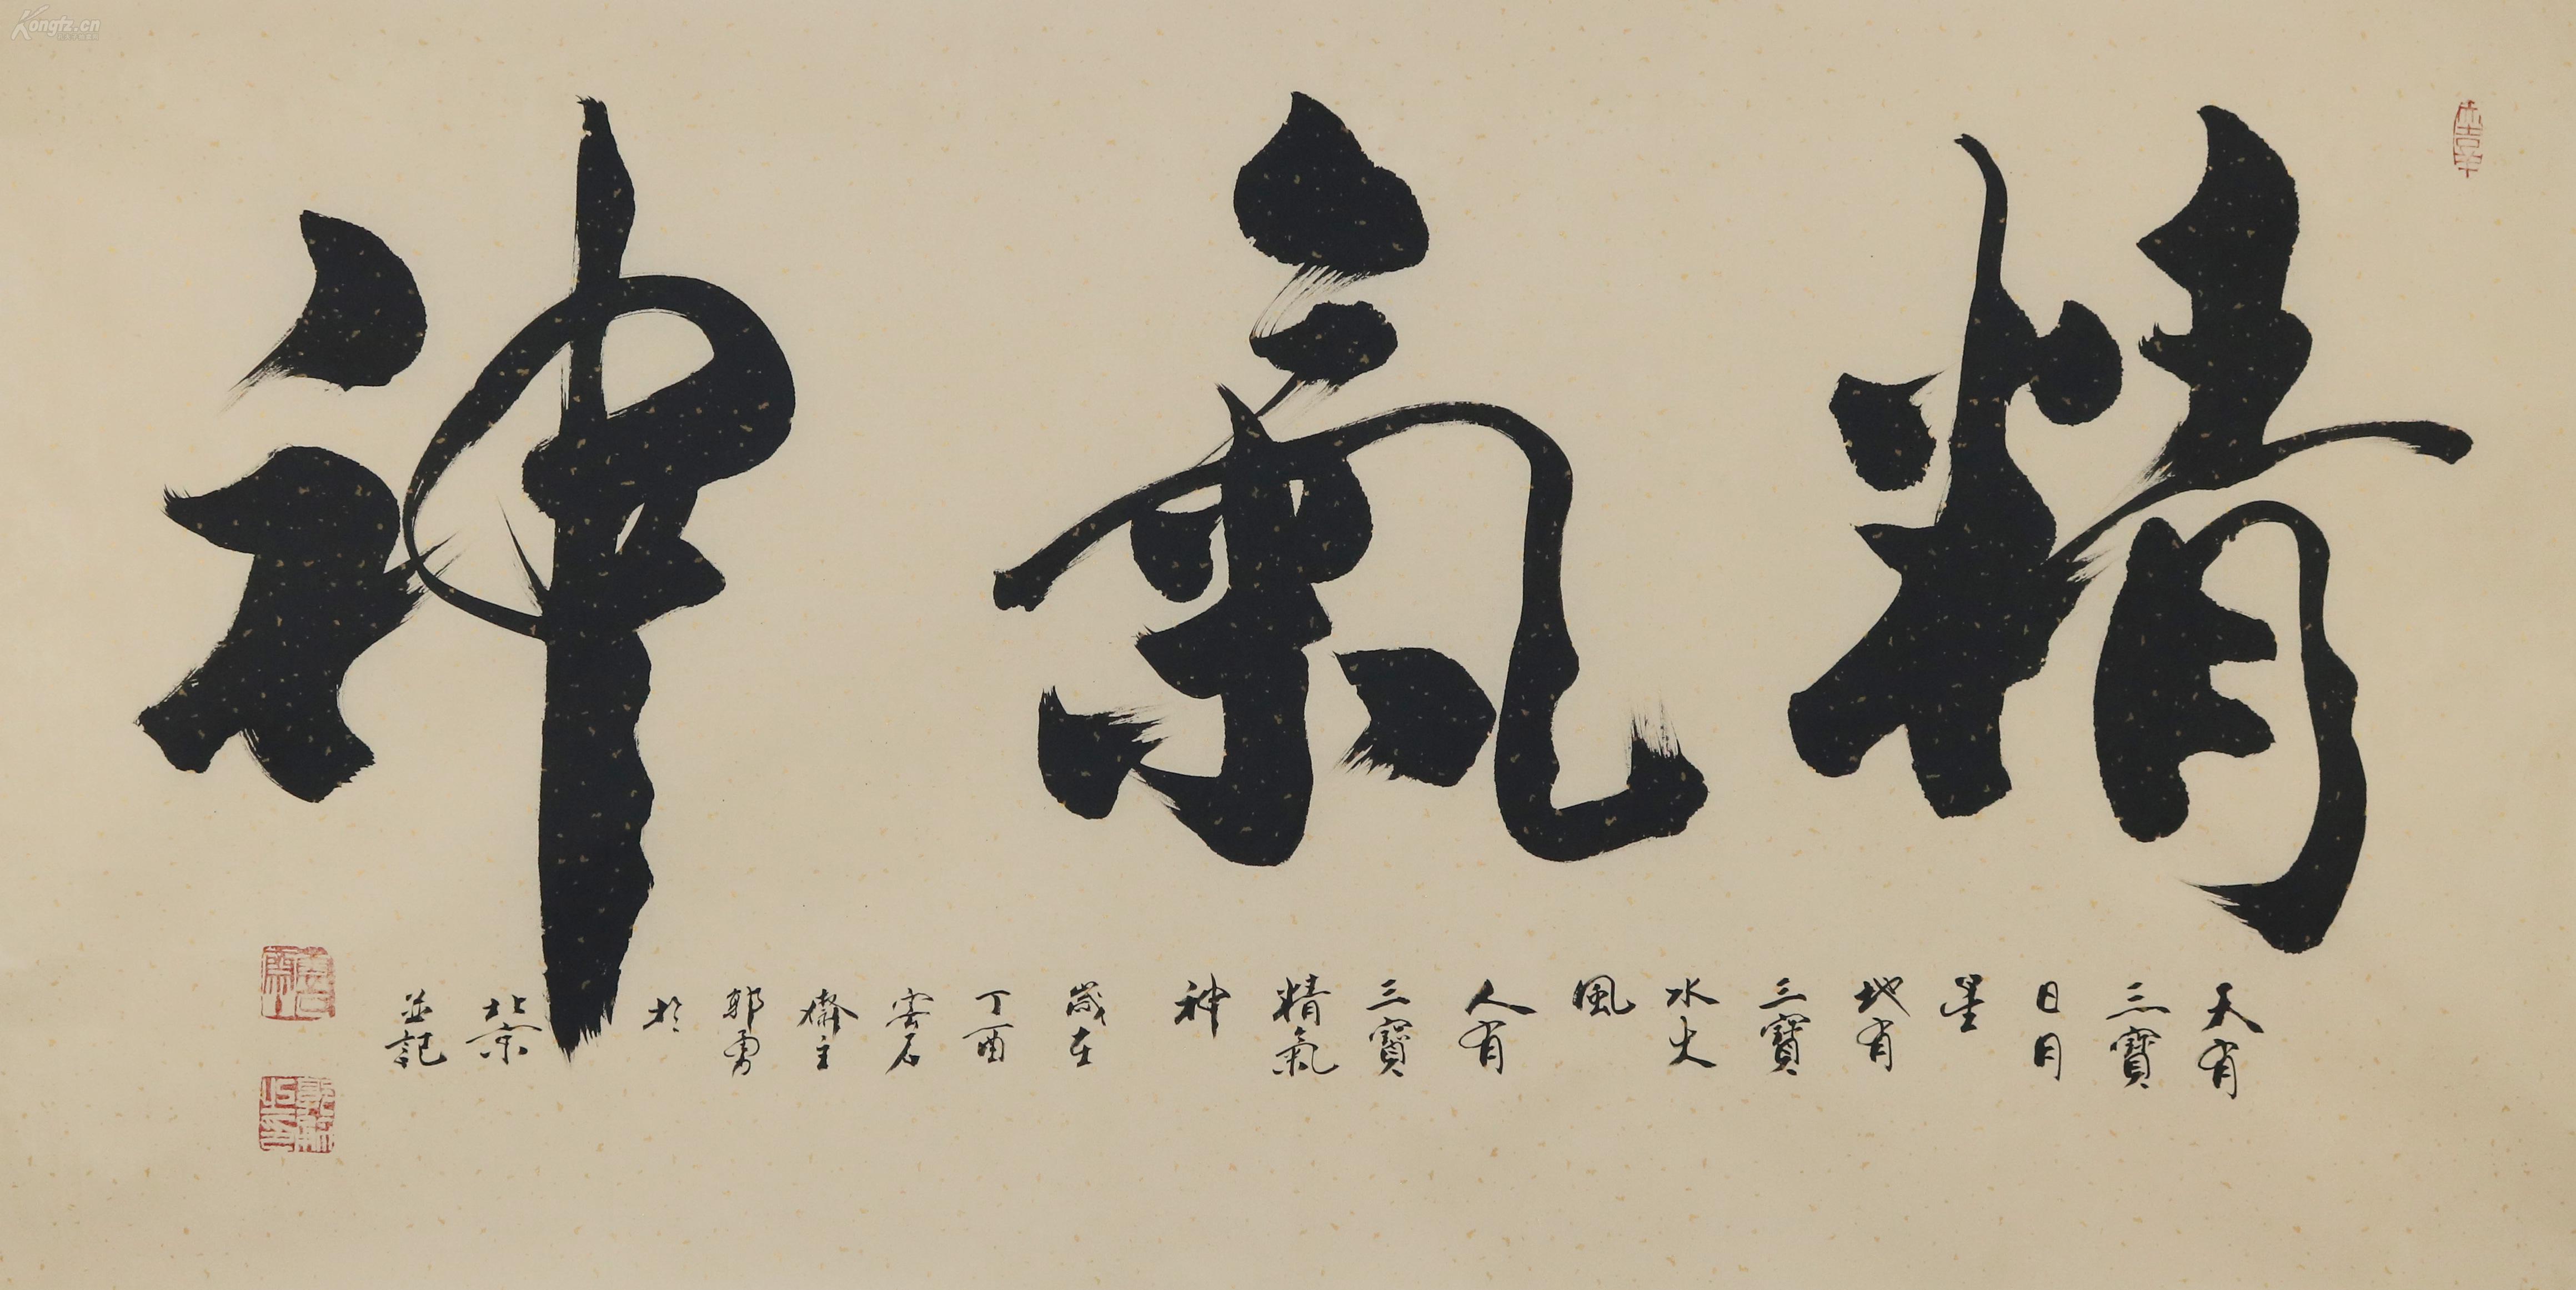 精氣神
天有
三寶
日月
星
地有
三寶
水火
風
人有
三寶
精氣
神
歲在
丁酉
雲石
齋主
郭勇
於
北京
並記
Kongfz.cn